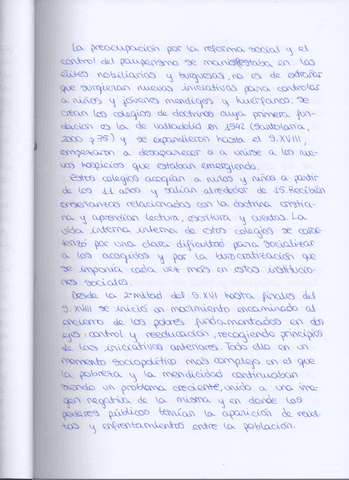 La preocupación por la reforma social y el
control del pauperismo se manifestaba en las
élites nobiliarias y burguesas, no es de extrañar
que surgieran nuevas iniciativas para controlar
a niños y jóvenes mendigos y huérfanos. Se
crean los colegios de doctrinos cuya primera fun-
dación es la de Valladolid en 1542 (Santolaria,
2000, p.75) y se expandieron hasta el S.XVIII,
empezaron a desaparecer o a unirse a los nue-
vos hospicios que estaban emergiendo.
Estos colegios acogían a niños y niñas a partir
de los 11 años y salían alrededor de 15. Recibían
enseñanzas relacionadas con la doctrina cristia-
na y aprendían lectura, escritura y cuentas. La
vida interna interna de estos colegios se carac-
terizó por una clara dificultad para socializar
a los acogidos y por la burocratización que
se imponía cada vez más en estas institucio-
nes sociales.
Desde la 2ª mitad del S.XVI hasta finales del
S.XVIII se inició un movimiento encaminado al
encierro de los pobres fundamentados en dos
ejes: control y reeducación, recogiendo principios
de las iniciativas anteriores. Todo ello en un
momento sociopolítico más complejo en el que
la pobreza y la mendicidad continuaban
siendo un problema creciente, unido a una ima-
gen negativa de la misma y en donde los
poderes públicos temían la aparición de revuel-
tas y enfrentamientos entre la población.